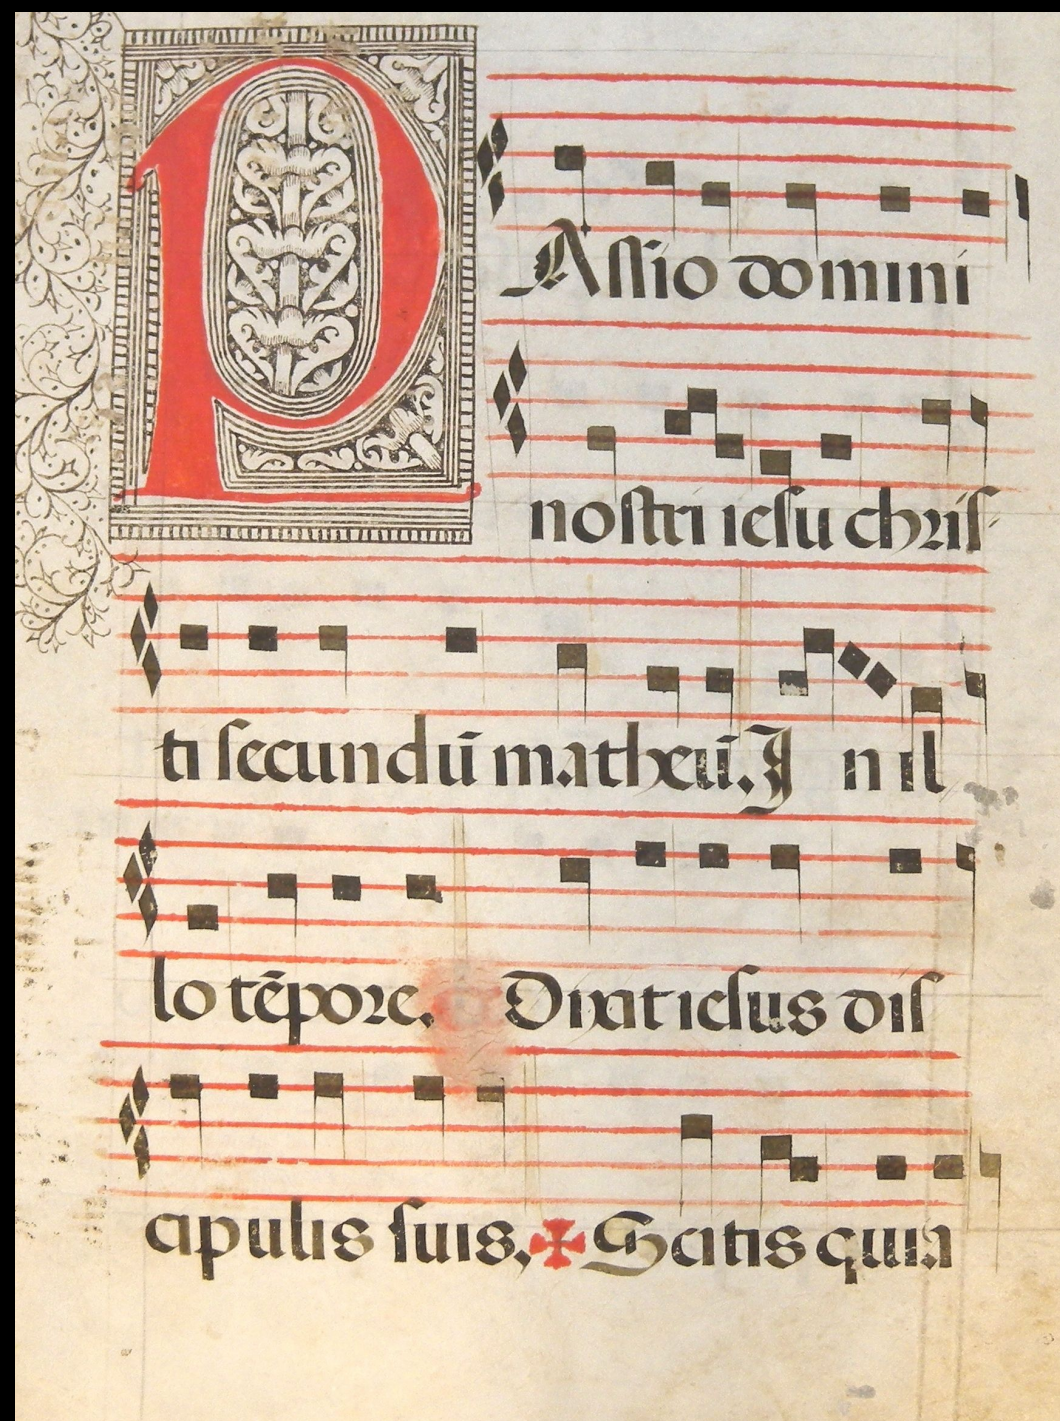 PAssio domini
nostri iesu chris-
ti secundū matheū. In il
lo tēpore. Dixit iesus dis
cipulis suis, ✠ Scitis quia